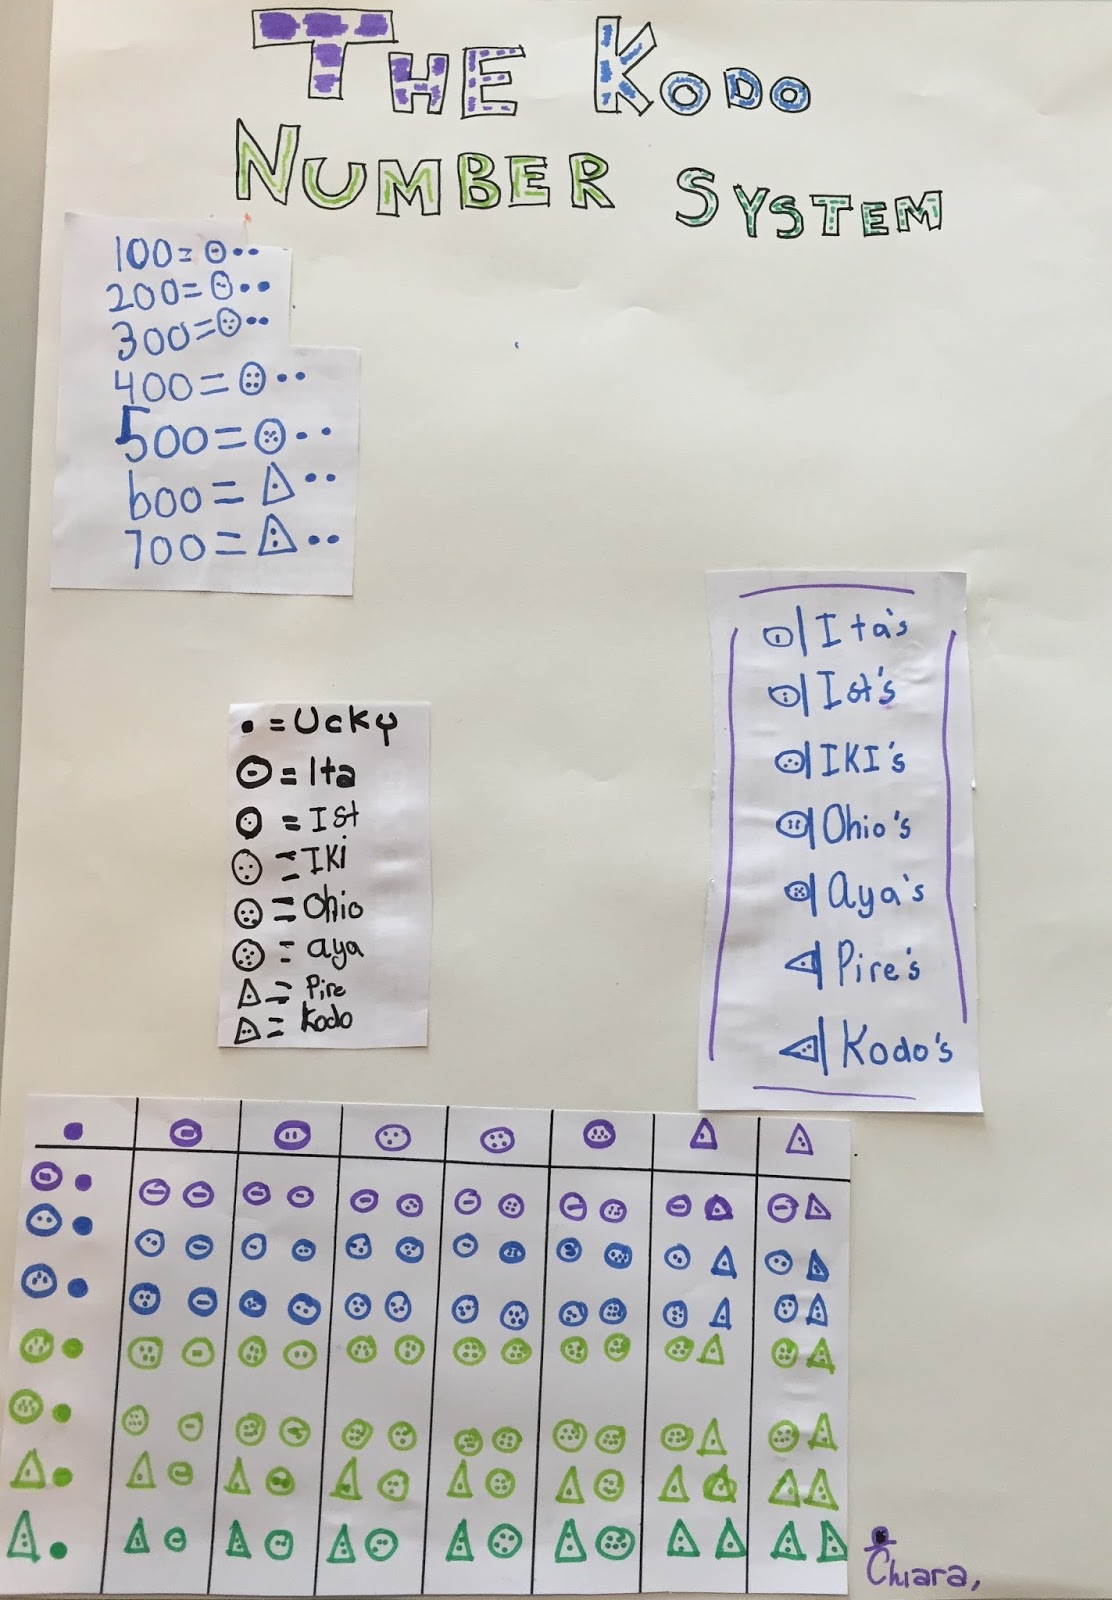 THE KODO
NUMBER SYSTEM
100=
200=
300=
400=
500=
600=
700=
Ita's
Ist's
IKI's
Ohio's
Aya's
Pire's
Kodo's
= Ucky
= Ita
= Ist
= IKi
= Ohio
= aya
= Pire
= Kodo
Chiara,